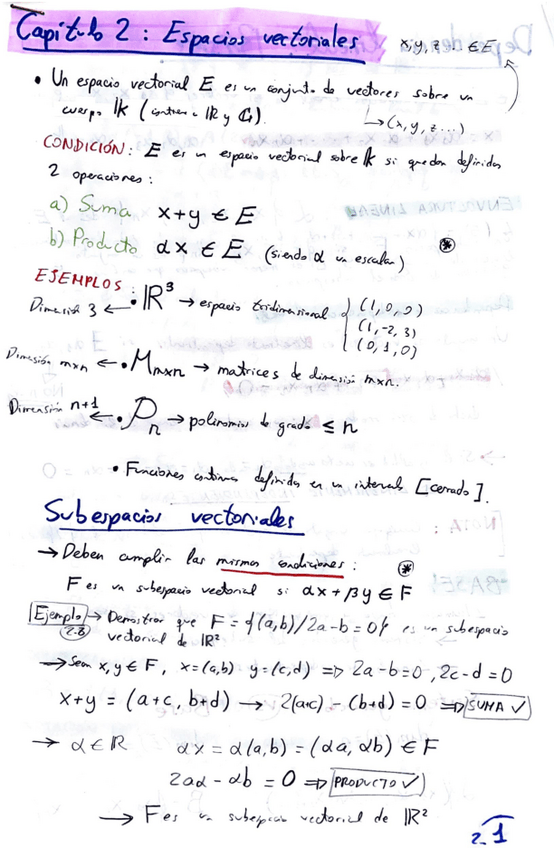 Capítulo 2: Espacios vectoriales
x,y,z... ∈ E
• Un espacio vectorial E es un conjunto de vectores sobre un
cuerpo K (contiene ℝ y ℂ). ↳ (x, y, z...)
CONDICIÓN: E es un espacio vectorial sobre K si quedan definidas
2 operaciones:
a) Suma x+y ∈ E
b) Producto αx ∈ E (siendo α un escalar) ⊛
EJEMPLOS:
Dimensión 3 ← • ℝ³ → espacio tridimensional { (1,0,0)
(1,-2,3)
(0,1,0)
Dimensión mxn ← • Mmxn → matrices de dimensión mxn.
Dimensión n+1 ← • Pn → polinomios de grado ≤ n
• Funciones continuas definidas en un intervalo [cerrado].
Subespacios vectoriales
→ Deben cumplir las mismas condiciones: ⊛
F es un subespacio vectorial si αx + βy ∈ F
Ejemplo 2.8 → Demostrar que F = {(a,b)/2a-b=0} es un subespacio
vectorial de ℝ²
→ Sean x,y ∈ F, x=(a,b) y=(c,d) ⇒ 2a-b=0, 2c-d=0
x+y = (a+c, b+d) → 2(a+c) - (b+d) = 0 ⇒ SUMA ✓
→ α ∈ ℝ αx = α(a,b) = (αa, αb) ∈ F
2aα - αb = 0 ⇒ PRODUCTO ✓
→ F es un subespacio vectorial de ℝ²
2.1